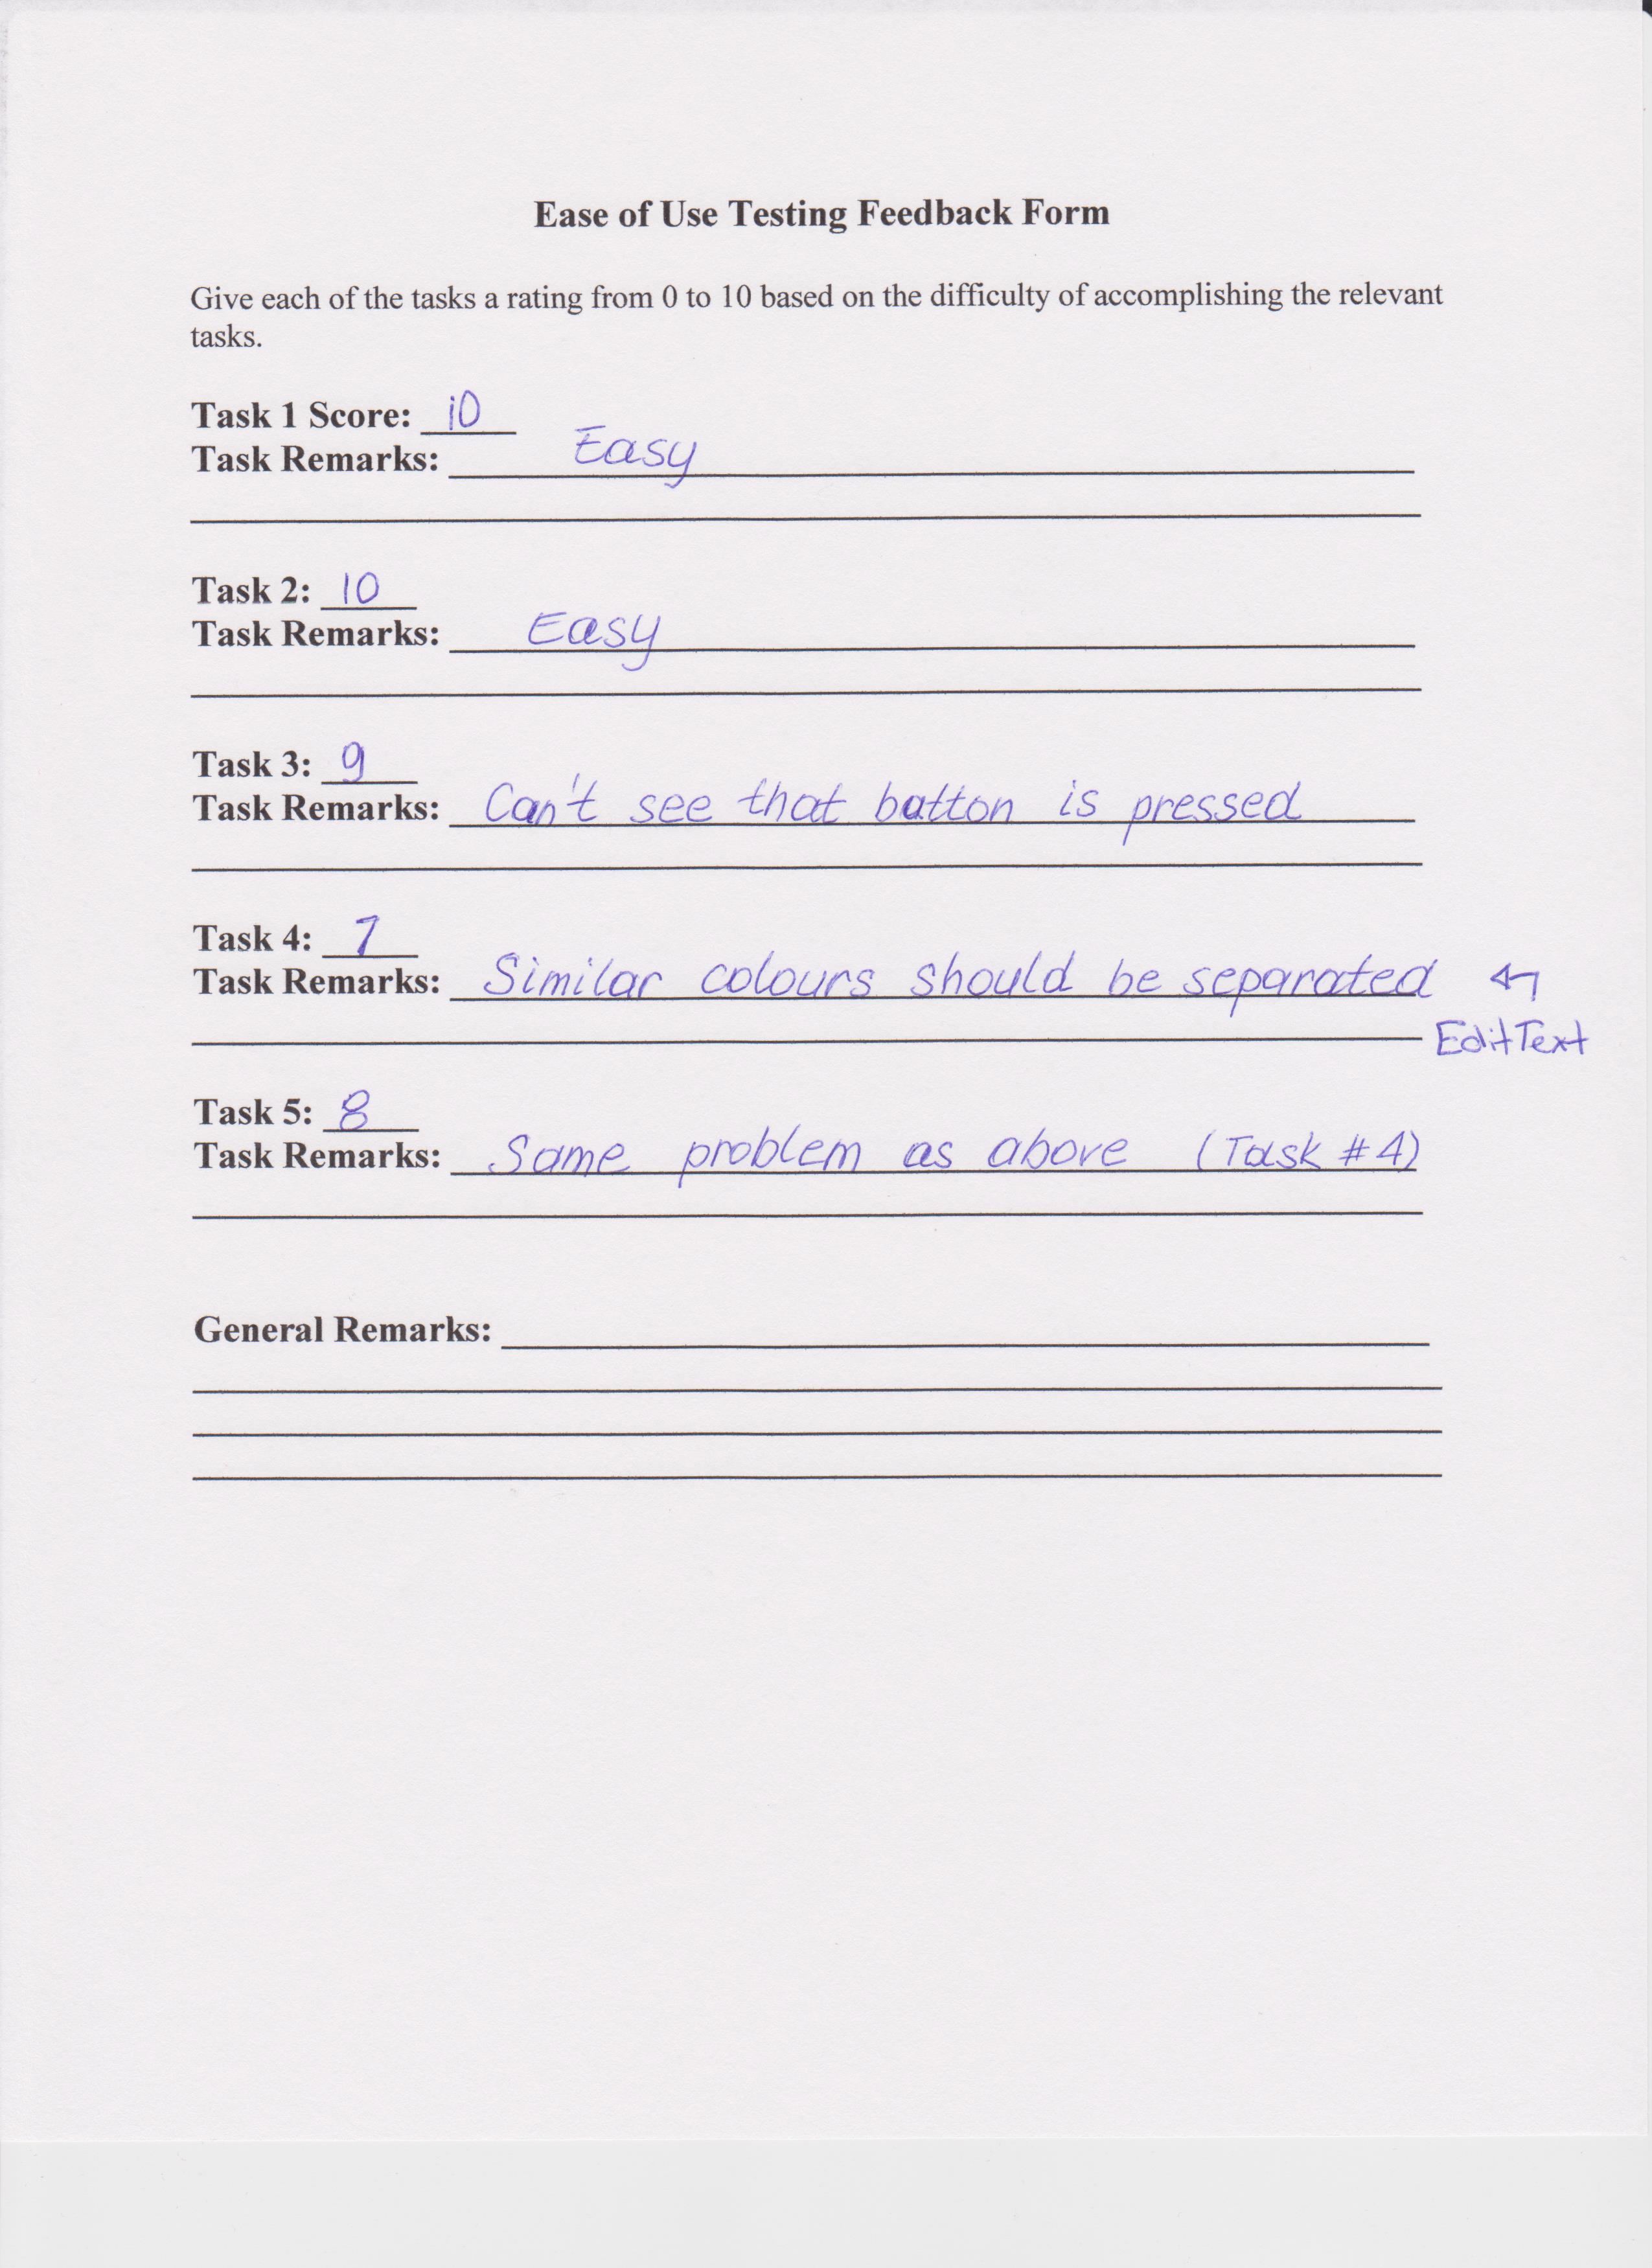 Ease of Use Testing Feedback Form
Give each of the tasks a rating from 0 to 10 based on the difficulty of accomplishing the relevant
tasks.
Task 1 Score: 10
Task Remarks: Easy
Task 2: 10
Task Remarks: Easy
Task 3: 9
Task Remarks: Can't see that button is pressed
Task 4: 7
Task Remarks: Similar colours should be separated
EditText
Task 5: 8
Task Remarks: Same problem as above (Task #4)
General Remarks: